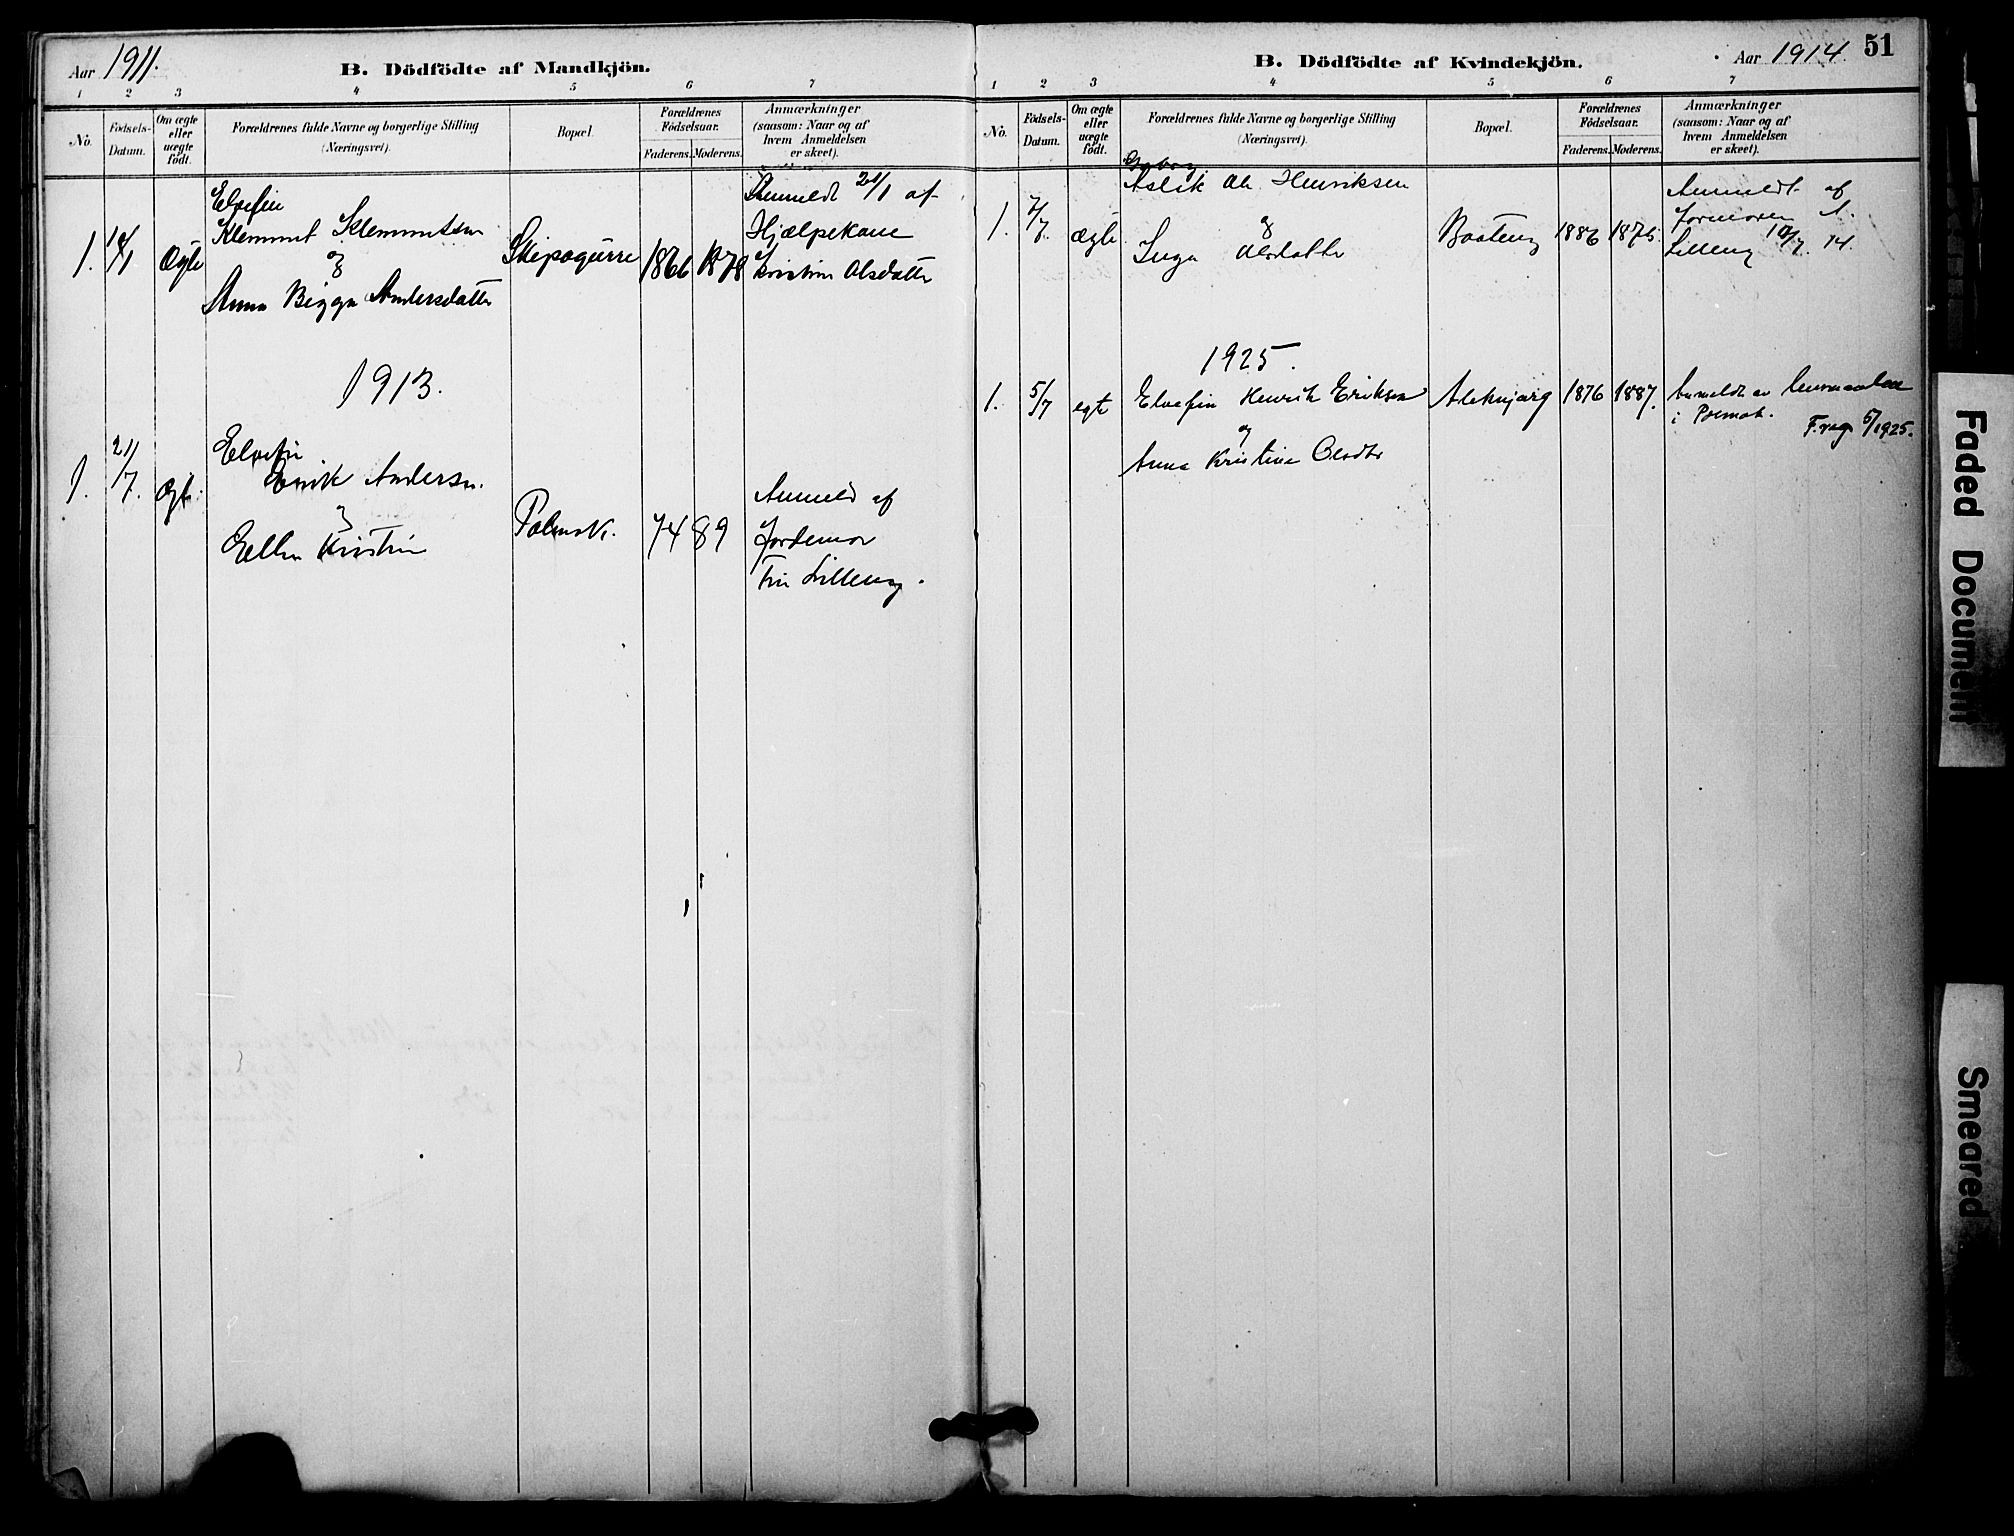 Aar 1911.
B. Dödfödte af Mandkjön.
1 2 3 4 5 6 7
No.
Födsels-
Datum.
Om ægte
eller
uægte
födt.
Forældrenes fulde Navne og borgerlige Stilling
(Næringsvei).
Bopæl.
Forældrenes
Födselsaar.
Faderens. Moderens.
Anmærkninger
(saasom: Naar og af
hvem Anmeldelsen
er skeet).
Elvefin
Klemmet Klemmetsen
og
Anna Bigga Andersdatter
1. Ægte
Skipagurre
1866 1878
Anmeldt 21/1 af
Hjælpekone
Kristin Olsdatter
1913.
1. 21/7. Ægte
Elvefin
Erik Andersen.
og
Ellen Kristin
Polmak.
74 89
Anmeld af
Jordemor
Lilleng.
B. Dödfödte af Kvindekjön.
Aar 1914.
51
1 2 3 4 5 6 7
No.
Födsels-
Datum.
Om ægte
eller
uægte
födt.
Forældrenes fulde Navne og borgerlige Stilling
(Næringsvei).
Bopæl.
Forældrenes
Födselsaar.
Faderens. Moderens.
Anmærkninger
(saasom: Naar og af
hvem Anmeldelsen
er skeet).
Aslak Henriksen
og
Inga Olsdatter
1. 7/7. ægte
Baateng
1886 1875.
Anmeldt af
Jormoren A.
Lilleng 10/7. 14.
1925.
1. 5/7 egte
Elvefin Henrik Eriksen
og
Anna Kristine Olsdtr
Aleknjarg
1876 1887.
Anmeldt av lensmannen
i Polmak.
F.reg. 1925.
Faded Document
Smeared